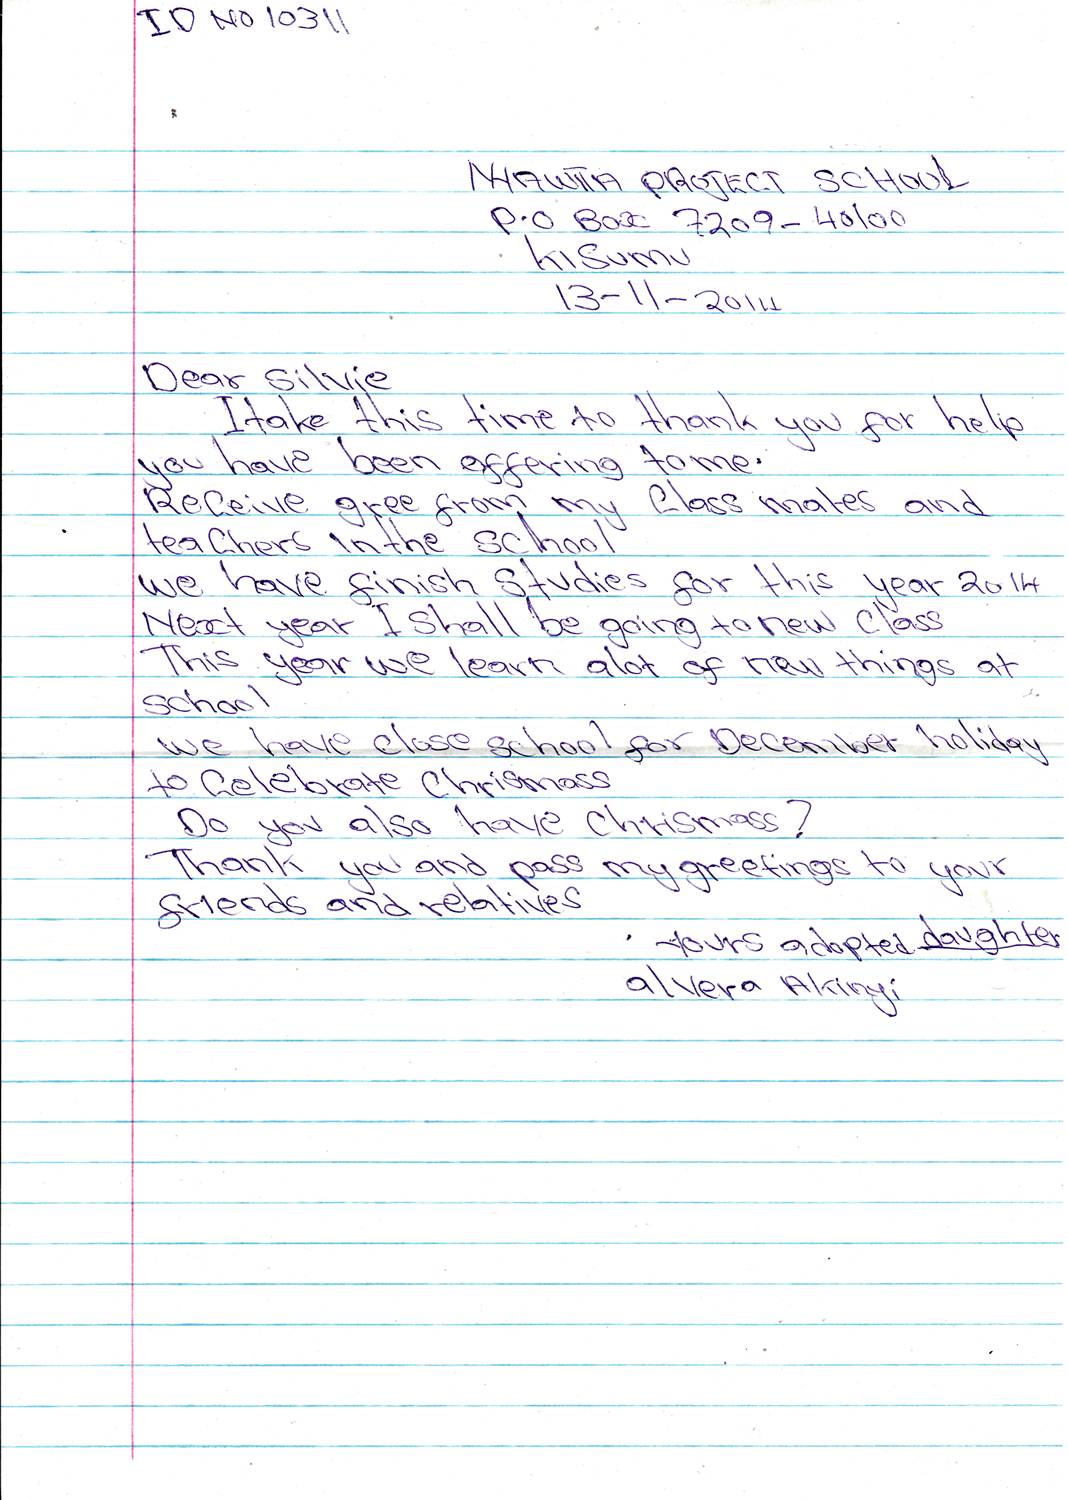 ID NO 10311
PROJECT SCHOOL
P.O Box 7209-40100
Kisumu
13-11-2014
Dear Silvie
I take this time to thank you for help
you have been offering to me.
Receive gree from my Class mates and
teachers in the school
we have finish studies for this year 2014
Next year I shall be going to new class
This year we learn alot of new things at
school
we have close school for December holiday
to Celebrate Chrismass
Do you also have Chrismass?
Thank you and pass my greetings to your
friends and relatives
Yours adopted daughter
alvera Akinyi